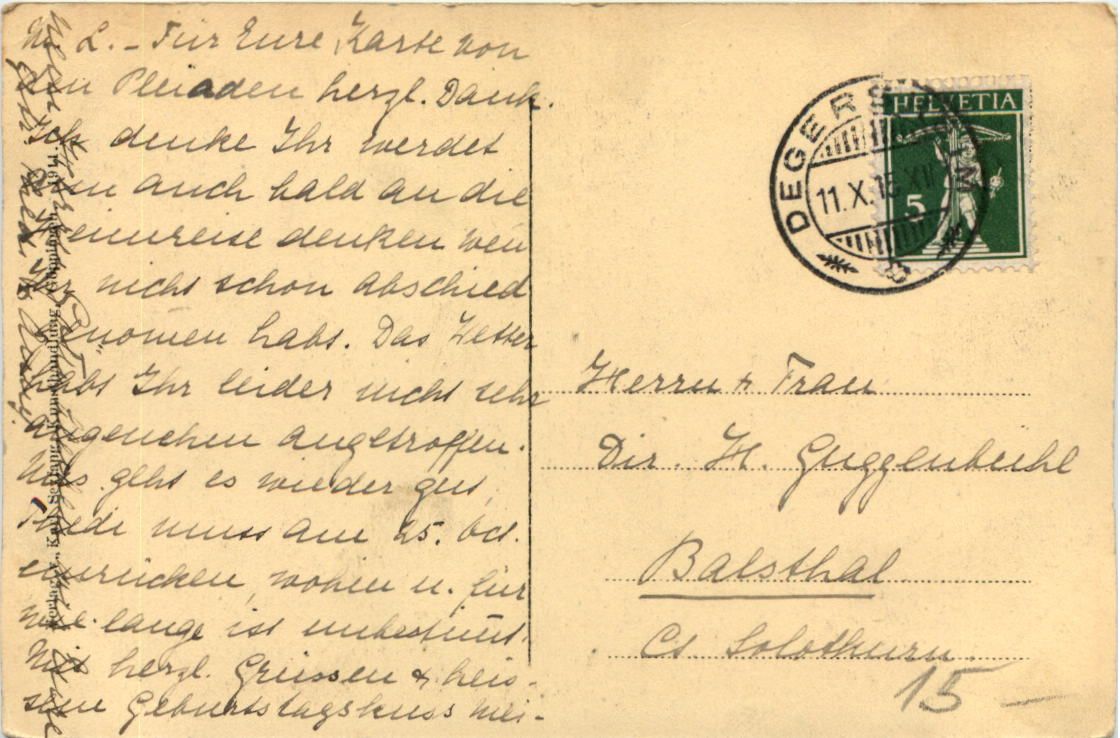 M. L. - Für Eure Karte von
den Pleiaden herzl. Dank.
Ich denke Ihr werdet
nun auch bald an die
Heimreise denken wen
Ihr nicht schon Abschied
genomen habt. Das Wetter
habt Ihr leider nicht sehr
angenehm angetroffen.
Uns geht es wieder gut,
muss am 25. Oct.
einrücken, wohin u. für
wie lange ist unbestimt.
Mit herzl. Grüssen & heis-
sem Geburtstagskuss
Verlag v. Karl Kunsthandlung, Göppingen. 1911
HELVETIA
5
DEGERSHEIM
11.X.15.XII
Herrn & Frau
Dir. H. Guggenbuehl
Balsthal
Ct. Solothurn.
15 —